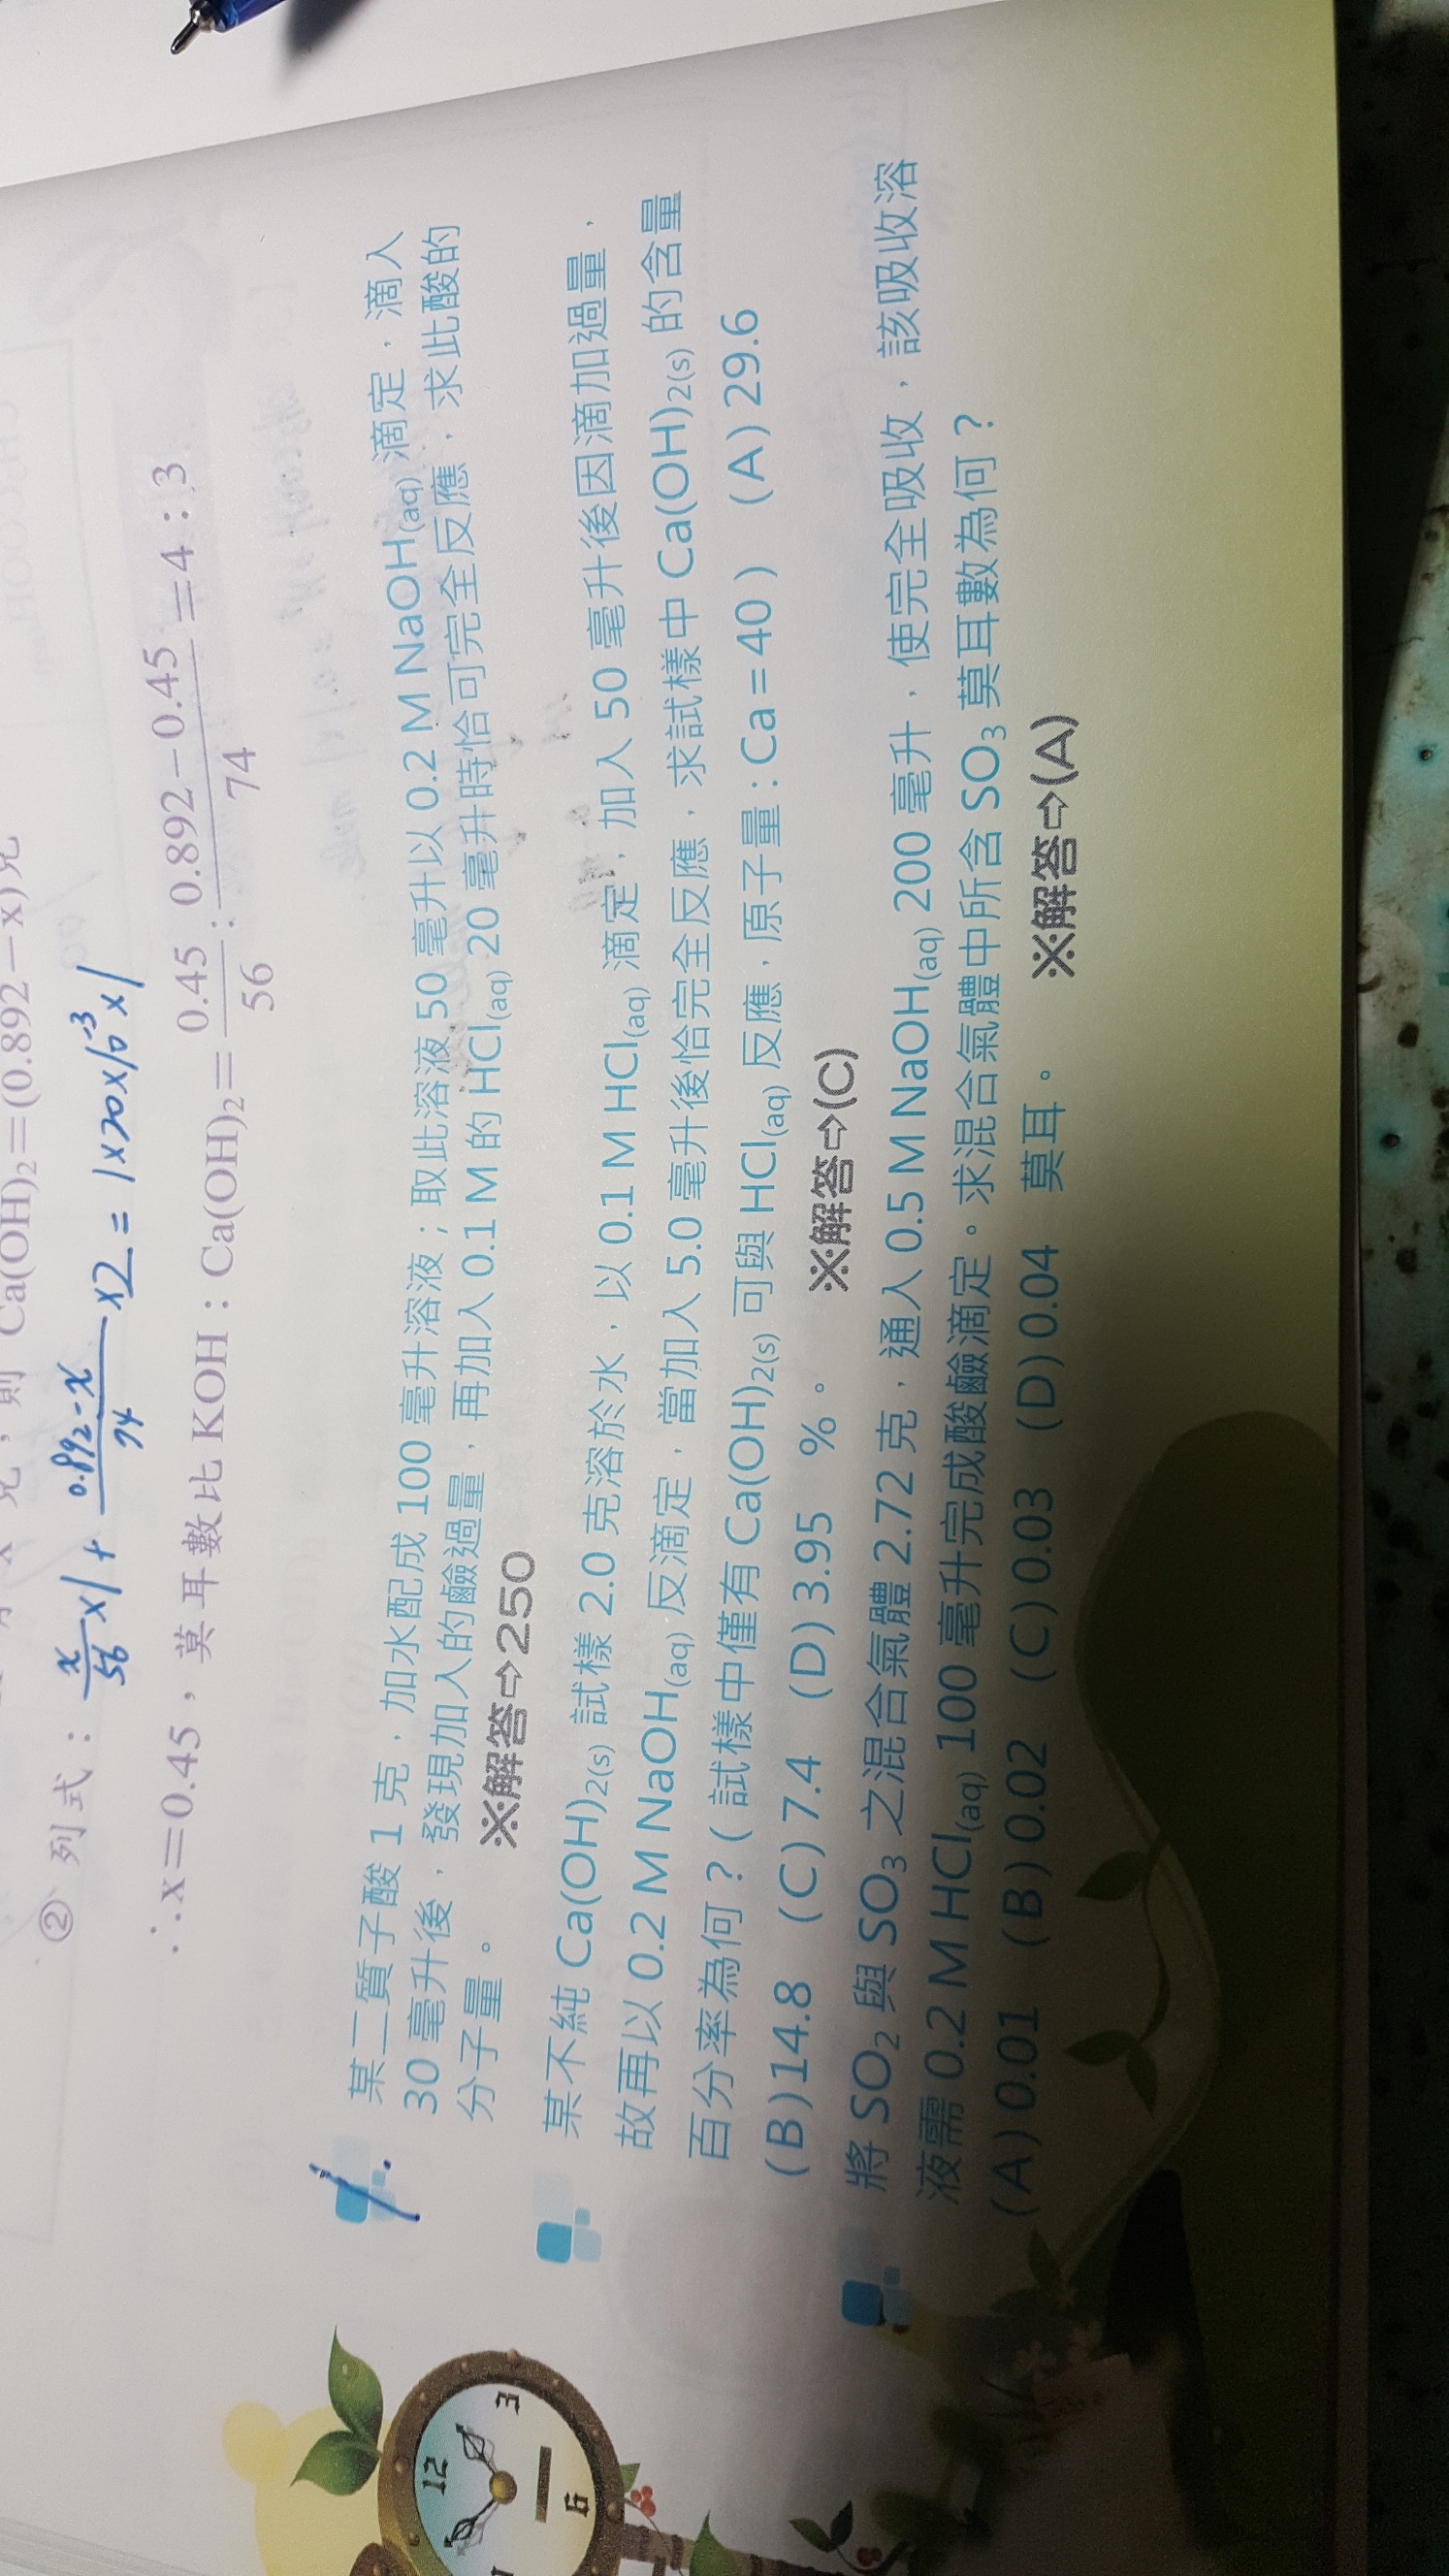 Ca(OH)₂=(0.892-x)克
② 列式：x/56 ×1 + 0.892-x/74 ×2 = 1×20×10⁻³×1
∴x=0.45，莫耳數比 KOH：Ca(OH)₂= 0.45/56 : 0.892-0.45/74 =4:3
1.
某二質子酸 1 克，加水配成 100 毫升溶液；取此溶液 50 毫升以 0.2 M NaOH(aq) 滴定，滴入
30 毫升後，發現加入的鹼過量，再加入 0.1 M 的 HCl(aq) 20 毫升時恰可完全反應，求此酸的
分子量。 ※解答⇨250
某不純 Ca(OH)₂(s) 試樣 2.0 克溶於水，以 0.1 M HCl(aq) 滴定，加入 50 毫升後因滴加過量，
故再以 0.2 M NaOH(aq) 反滴定，當加入 5.0 毫升後恰完全反應，求試樣中 Ca(OH)₂(s) 的含量
百分率為何？( 試樣中僅有 Ca(OH)₂(s) 可與 HCl(aq) 反應，原子量：Ca=40 ) (A) 29.6
(B)14.8 (C)7.4 (D)3.95 %。 ※解答⇨(C)
將 SO₂ 與 SO₃ 之混合氣體 2.72 克，通入 0.5 M NaOH(aq) 200 毫升，使完全吸收，該吸收溶
液需 0.2 M HCl(aq) 100 毫升完成酸鹼滴定。求混合氣體中所含 SO₃ 莫耳數為何？
(A) 0.01 (B) 0.02 (C) 0.03 (D) 0.04 莫耳。 ※解答⇨(A)
12
3
6